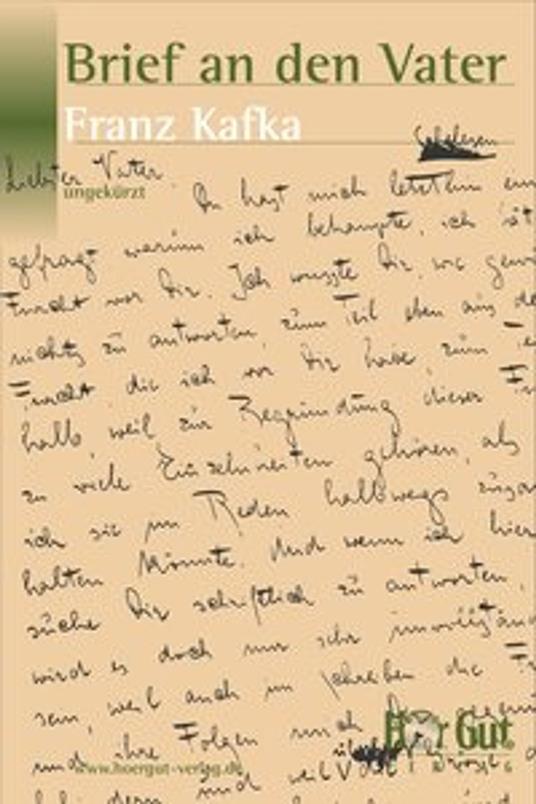 Brief an den Vater
Franz Kafka
Schelesen
Liebster Vater,
ungekürzt
Du hast mich letzthin ein
gefragt warum ich behaupte, ich hät
Furcht vor Dir. Ich wusste Dir, wie gewö
nichts zu antworten, zum Teil eben aus de
Furcht, die ich vor Dir habe, zum Te
halb, weil zur Begründung dieser Fu
zu viele Einzelheiten gehören, als
ich sie im Reden halbwegs zusam
halten könnte. Und wenn ich hier
suche Dir schriftlich zu antworten,
wird es doch nur sehr unvollständ
sein, weil auch im Schreiben die Fu
und ihre Folgen mich Dir gegen
Hör Gut
www.hoergut-verlag.de
und weil